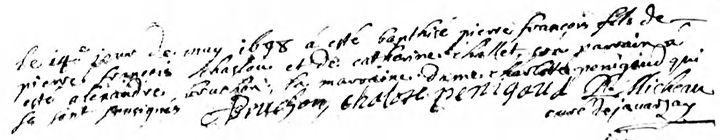 le 14e jour de may 1698 a esté baptisé pierre françois fils de
pierre françois et de catharine chollet, son parrain a
esté alexandre bruchon, la marraine dame charlotte penigaud qui
se sont soussignés Bruchon, chalote penigaud P. Micheau
curé de javarzay